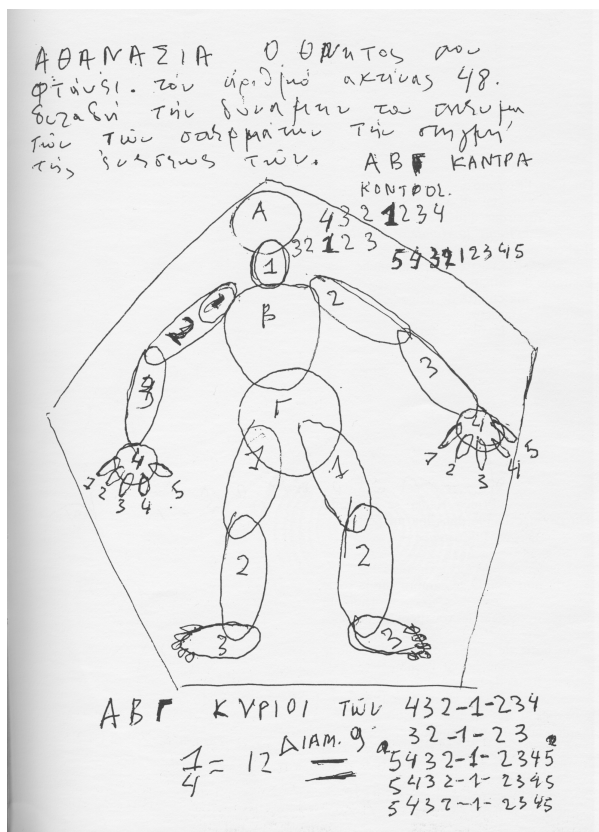 ΑΘΑΝΑΣΙΑ Ο θνητος που
φτάνει. τόν αριθμό ακτίνας 48.
δηλαδή την δύναμην το πνευμα
των των σπερμάτων την στιγμή
της ενώσεως τών. Α Β Γ ΚΑΝΤΡΑ
ΚΟΝΤΡΟΛ.
Α 4 3 2 1 2 3 4
1 32 1 2 3
5 4 3 2 1 2 3 4 5
2 1 Β 2
3 3
Γ
4 4
1 2 3 4 5 1 2 3 4 5
1 1
2 2
3 3
Α Β Γ ΚΥΡΙΟΙ τών 432-1-234
32-1-23
1/4 = 12 ΔΙΑΜ. 9 5432-1-2345
5432-1-2345
5432-1-2345